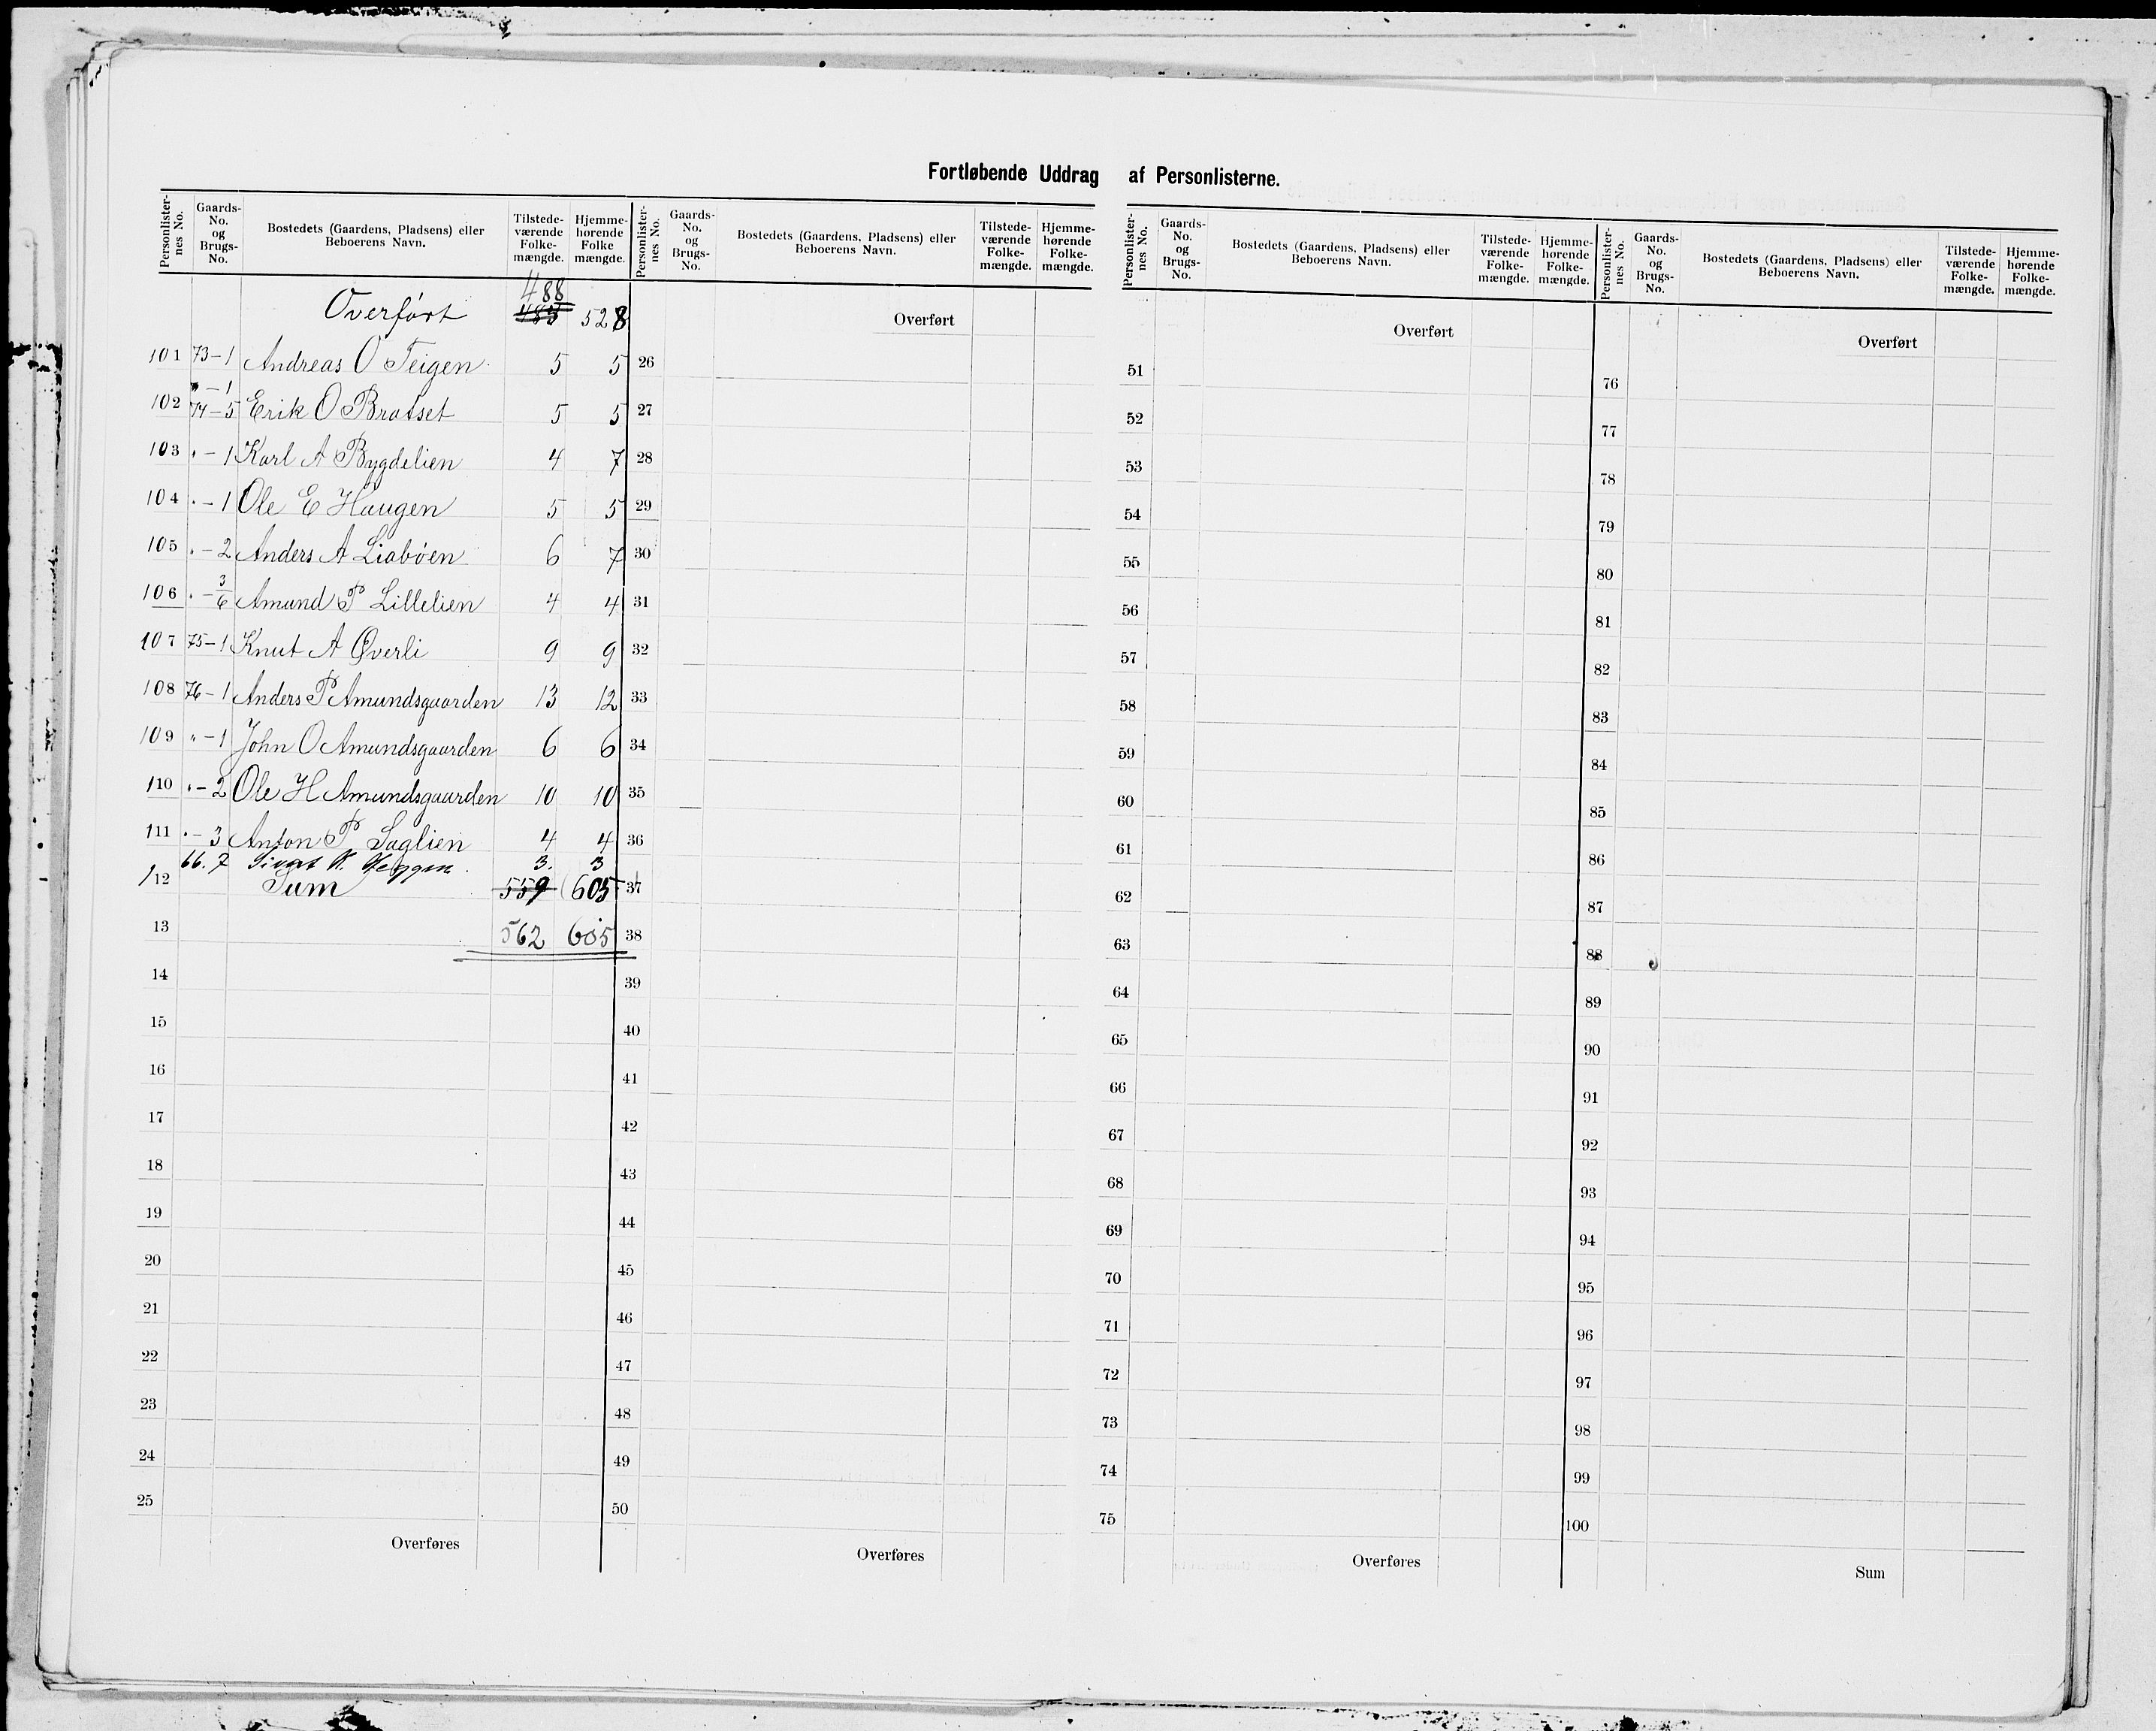 Fortløbende Uddrag af Personlisterne.
Personlister-nes No. Gaards-No. og Brugs-No. Bostedets (Gaardens, Pladsens) eller Beboerens Navn. Tilstede-værende Folke-mængde. Hjemme-hørende Folke mængde.
Overført 488 528
101 73-1 Andreas O Teigen 5 5
" - 1
102 74-5 Erik O Bratset 5 5
103 " - 1 Karl A Bygdelien 4 7
104 " - 1 Ole E Haugen 5 5
105 " - 2 Anders A Liabøen 6 7
106 " - 3/6 Amund P Lillelien 4 4
107 75-1 Knut A Øverli 9 9
108 76-1 Anders P Amundsgaarden 13 12
109 " - 1 John O Amundsgaarden 6 6
110 " - 2 Ole H Amundsgaarden 10 10
111 " - 3 Anton P Saglien 4 4
66.7 Sivert 3. 3
112 Sum 559 605
13 562 605
14
15
16
17
18
19
20
21
22
23
24
25
Overføres
Personlister-nes No. Gaards-No. og Brugs-No. Bostedets (Gaardens, Pladsens) eller Beboerens Navn. Tilstede-værende Folke-mængde. Hjemme-hørende Folke-mængde.
Overført
26
27
28
29
30
31
32
33
34
35
36
37
38
39
40
41
42
43
44
45
46
47
48
49
50
Overføres
Personlister-nes No. Gaards-No. og Brugs-No. Bostedets (Gaardens, Pladsens) eller Beboerens Navn. Tilstede-værende Folke-mængde. Hjemme-hørende Folke-mængde.
Overført
51
52
53
54
55
56
57
58
59
60
61
62
63
64
65
66
67
68
69
70
71
72
73
74
75
Overføres
Personlister-nes No. Gaards-No. og Brugs-No. Bostedets (Gaardens, Pladsens) eller Beboerens Navn. Tilstede-værende Folke-mængde. Hjemme-hørende Folke-mængde.
Overført
76
77
78
79
80
81
82
83
84
85
86
87
88
89
90
91
92
93
94
95
96
97
98
99
100
Sum